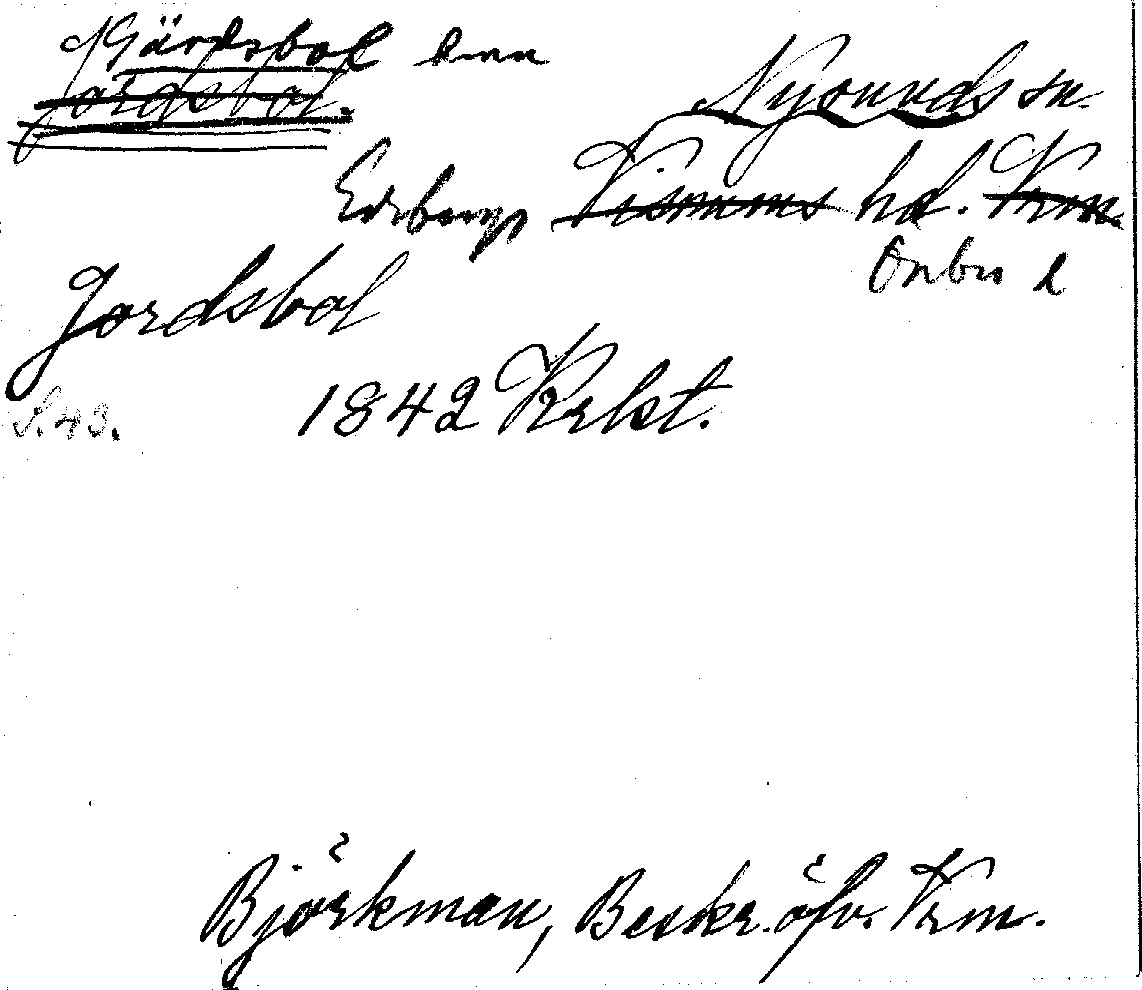 Gärdsbol
Jordsbol. Nysunds sn.
Edsbergs Visnums hd. Vrm.
Örebro l
Jordsbol
S. 43. 1842 Krkt.
Björkman, Beskr. öfv. Vrm.